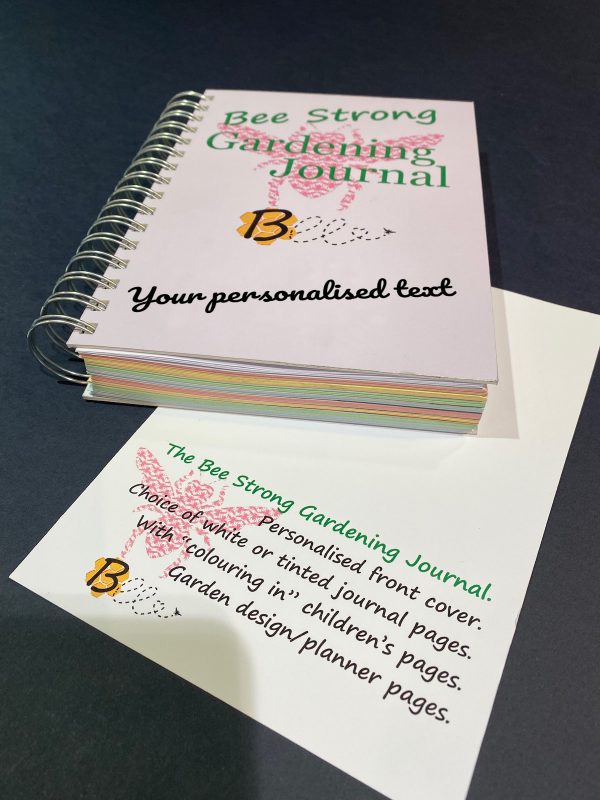 Bee Strong
Gardening
Journal
B
Your personalised text
The Bee Strong Gardening Journal.
Personalised front cover.
Choice of white or tinted journal pages.
With “colouring in” children's pages.
Garden design/planner pages.
B